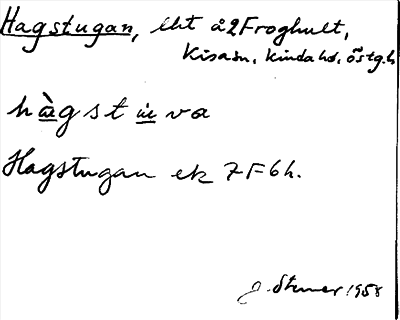 Hagstugan, lht å 2 Froghult,
Kisa sn, Kinda hd, Östg. l.
Hagstugan ek 7F6h.
J. Stener 1958